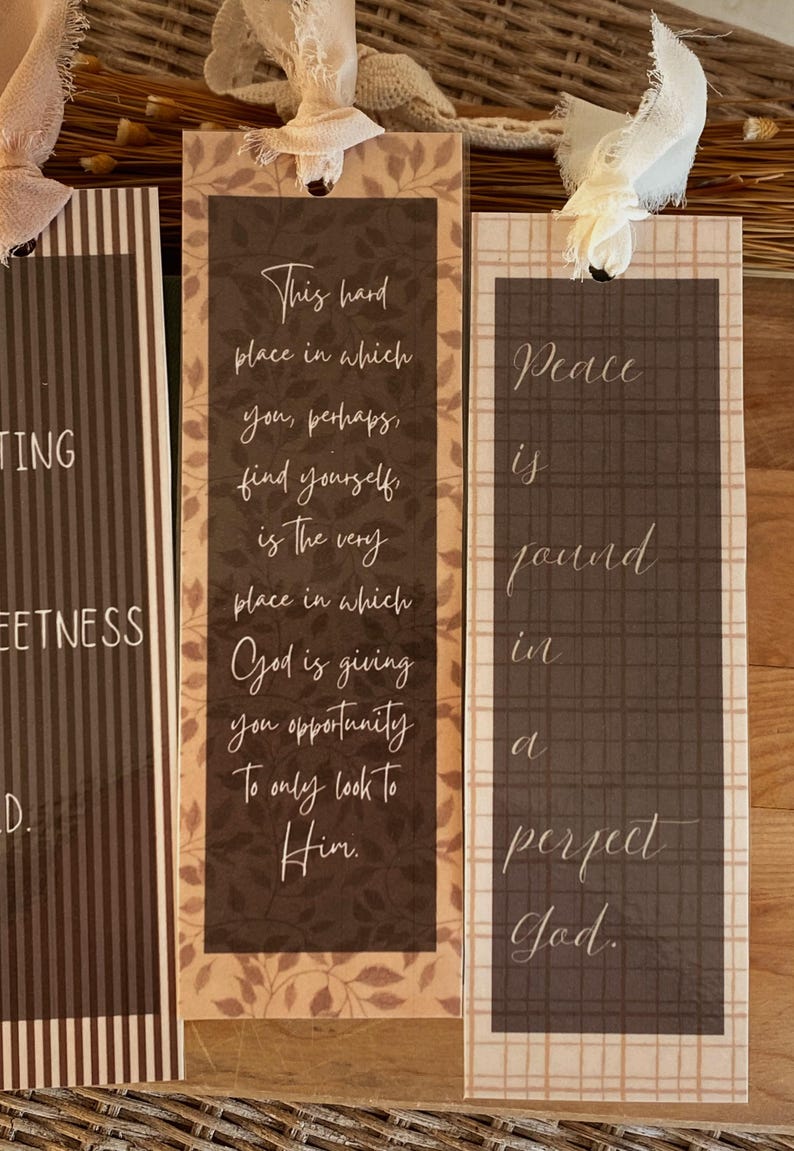 TING
EETNESS
D.
This hard
place in which
you, perhaps,
find yourself,
is the very
place in which
God is giving
you opportunity
to only look to
Him.
Peace
is
found
in
a
perfect
God.